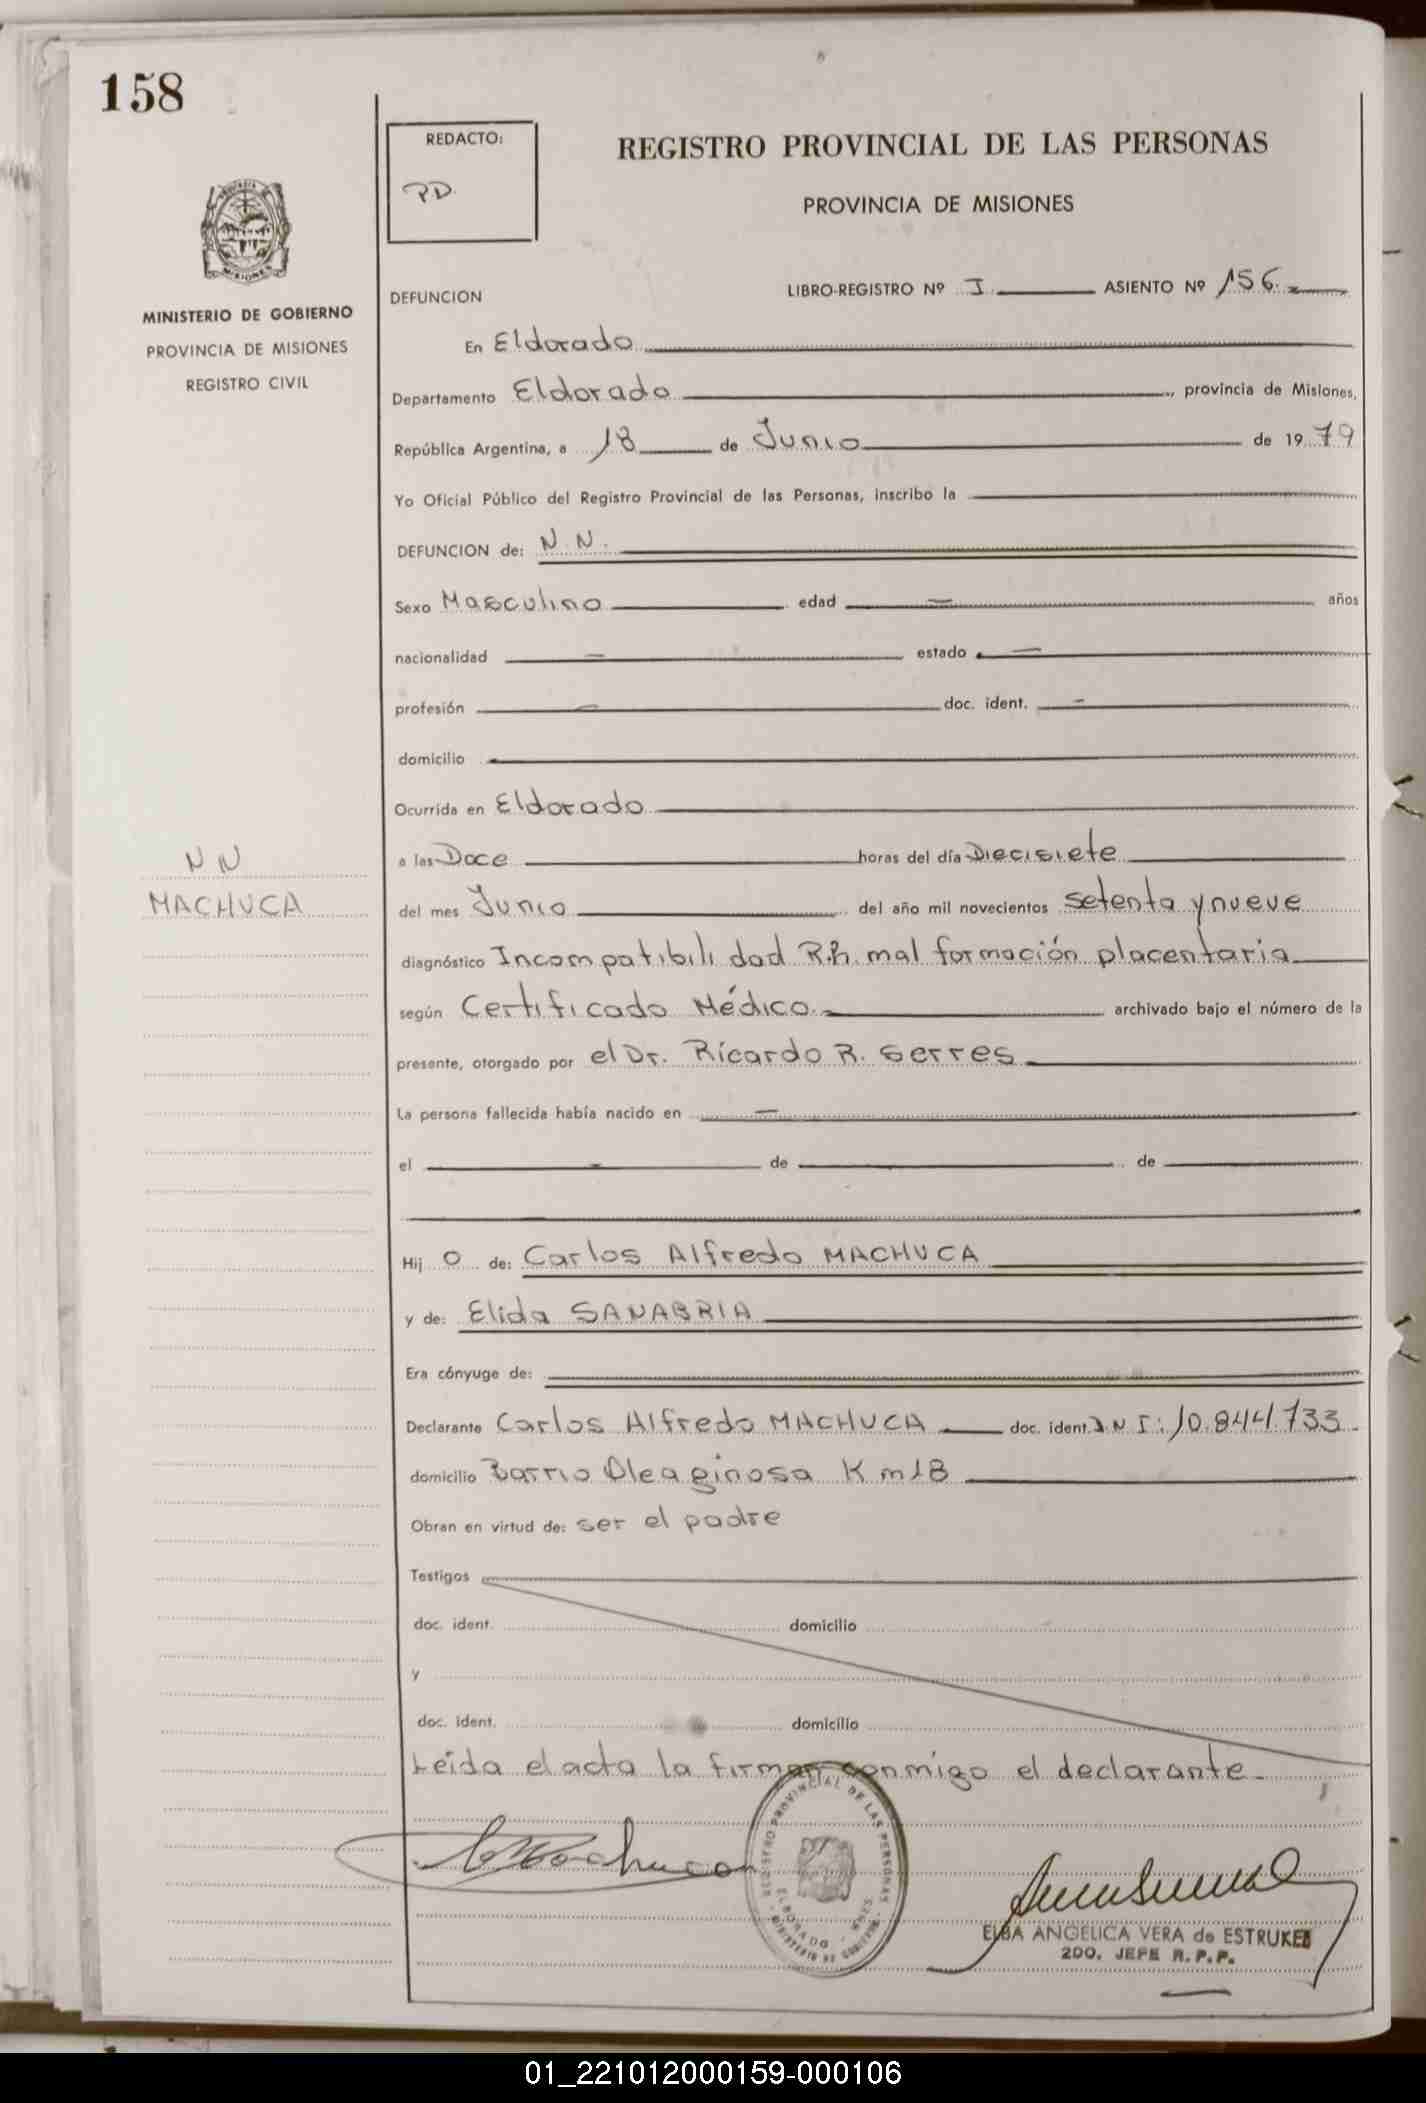 158
REDACTO:
PD.
REGISTRO PROVINCIAL DE LAS PERSONAS
PROVINCIA DE MISIONES
MISIONES
MINISTERIO DE GOBIERNO
PROVINCIA DE MISIONES
REGISTRO CIVIL
DEFUNCION
LIBRO-REGISTRO Nº I ASIENTO Nº 156
En Eldorado
Departamento Eldorado, provincia de Misiones,
República Argentina, a 18 de Junio de 1979
Yo Oficial Público del Registro Provincial de las Personas, inscribo la
DEFUNCION de: N.N.
Sexo Masculino edad — años
nacionalidad — estado —
profesión — doc. ident. —
domicilio
Ocurrida en Eldorado
a las Doce horas del día Diecisiete
N N
MACHUCA
del mes Junio del año mil novecientos setenta y nueve
diagnóstico Incompatibilidad R.h. mal formación placentaria
según Certificado Médico archivado bajo el número de la
presente, otorgado por el Dr. Ricardo R. Serres
La persona fallecida había nacido en —
el — de de
Hij o de: Carlos Alfredo MACHUCA
y de: Elida SANABRIA
Era cónyuge de:
Declarante Carlos Alfredo MACHUCA doc. ident. D.N.I: 10.844.733
domicilio Barrio Oleaginosa Km 18
Obran en virtud de: ser el padre
Testigos
doc. ident. domicilio
y
doc. ident. domicilio
Leída el acta la firman conmigo el declarante
REGISTRO PROVINCIAL DE LAS PERSONAS
ELDORADO - MNES.
MINISTERIO DE GOBIERNO
Machuca
ELBA ANGELICA VERA de ESTRUKEL
2DO. JEFE R.P.P.
01_221012000159-000106